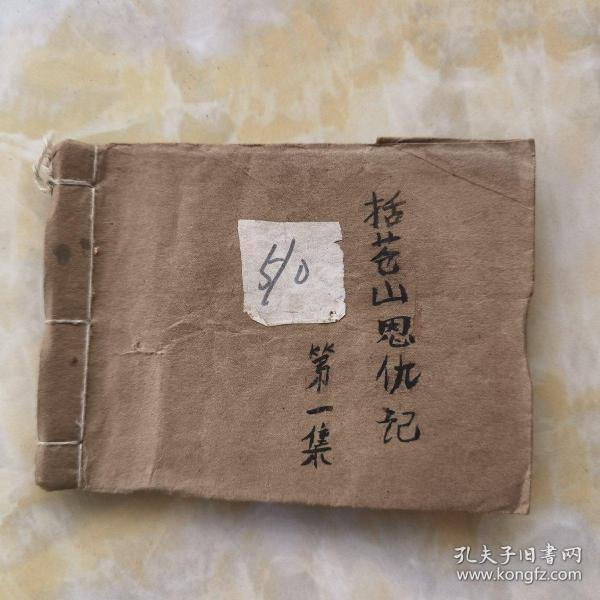 括苍山恩仇记
第一集
510
孔夫子旧书网
www.kongfz.com